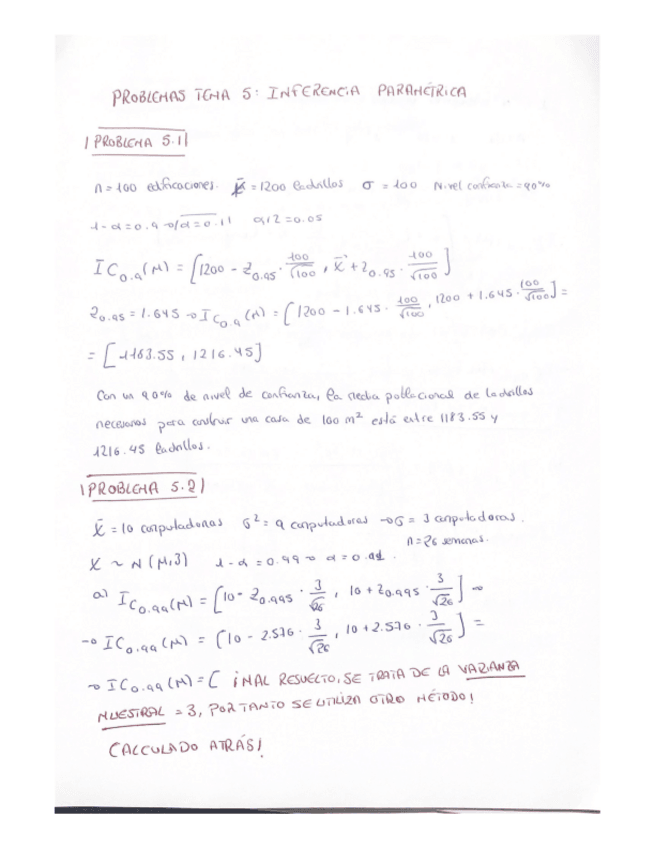 PROBLEMAS TEMA 5: INFERENCIA PARAMÉTRICA
PROBLEMA 5.1
n = 100 edificaciones. X̄ = 1200 ladrillos σ = 100 Nivel confianza = 90%
1-α = 0.9 → α = 0.1 α/2 = 0.05
IC₀.₉(M) = [1200 - z₀.₉₅ · 100/√100 , X̄ + z₀.₉₅ · 100/√100]
z₀.₉₅ = 1.645 → IC₀.₉(M) = [1200 - 1.645 · 100/√100 , 1200 + 1.645 · 100/√100] =
= [1183.55 , 1216.45]
Con un 90% de nivel de confianza, la media poblacional de ladrillos
necesarios para construir una casa de 100 m² está entre 1183.55 y
1216.45 ladrillos.
PROBLEMA 5.2
X̄ = 10 computadoras σ² = 9 computadoras → σ = 3 computadoras.
n = 26 semanas.
X ~ N(M,3) 1-α = 0.99 → α = 0.01.
a) IC₀.₉₉(M) = [10 - z₀.₉₉₅ · 3/√26 , 10 + z₀.₉₉₅ · 3/√26] →
→ IC₀.₉₉(M) = [10 - 2.576 · 3/√26 , 10 + 2.576 · 3/√26] =
→ IC₀.₉₉(M) = [ ¡MAL RESUELTO, SE TRATA DE LA VARIANZA
MUESTRAL = 3, POR TANTO SE UTILIZA OTRO MÉTODO!
CALCULADO ATRÁS!